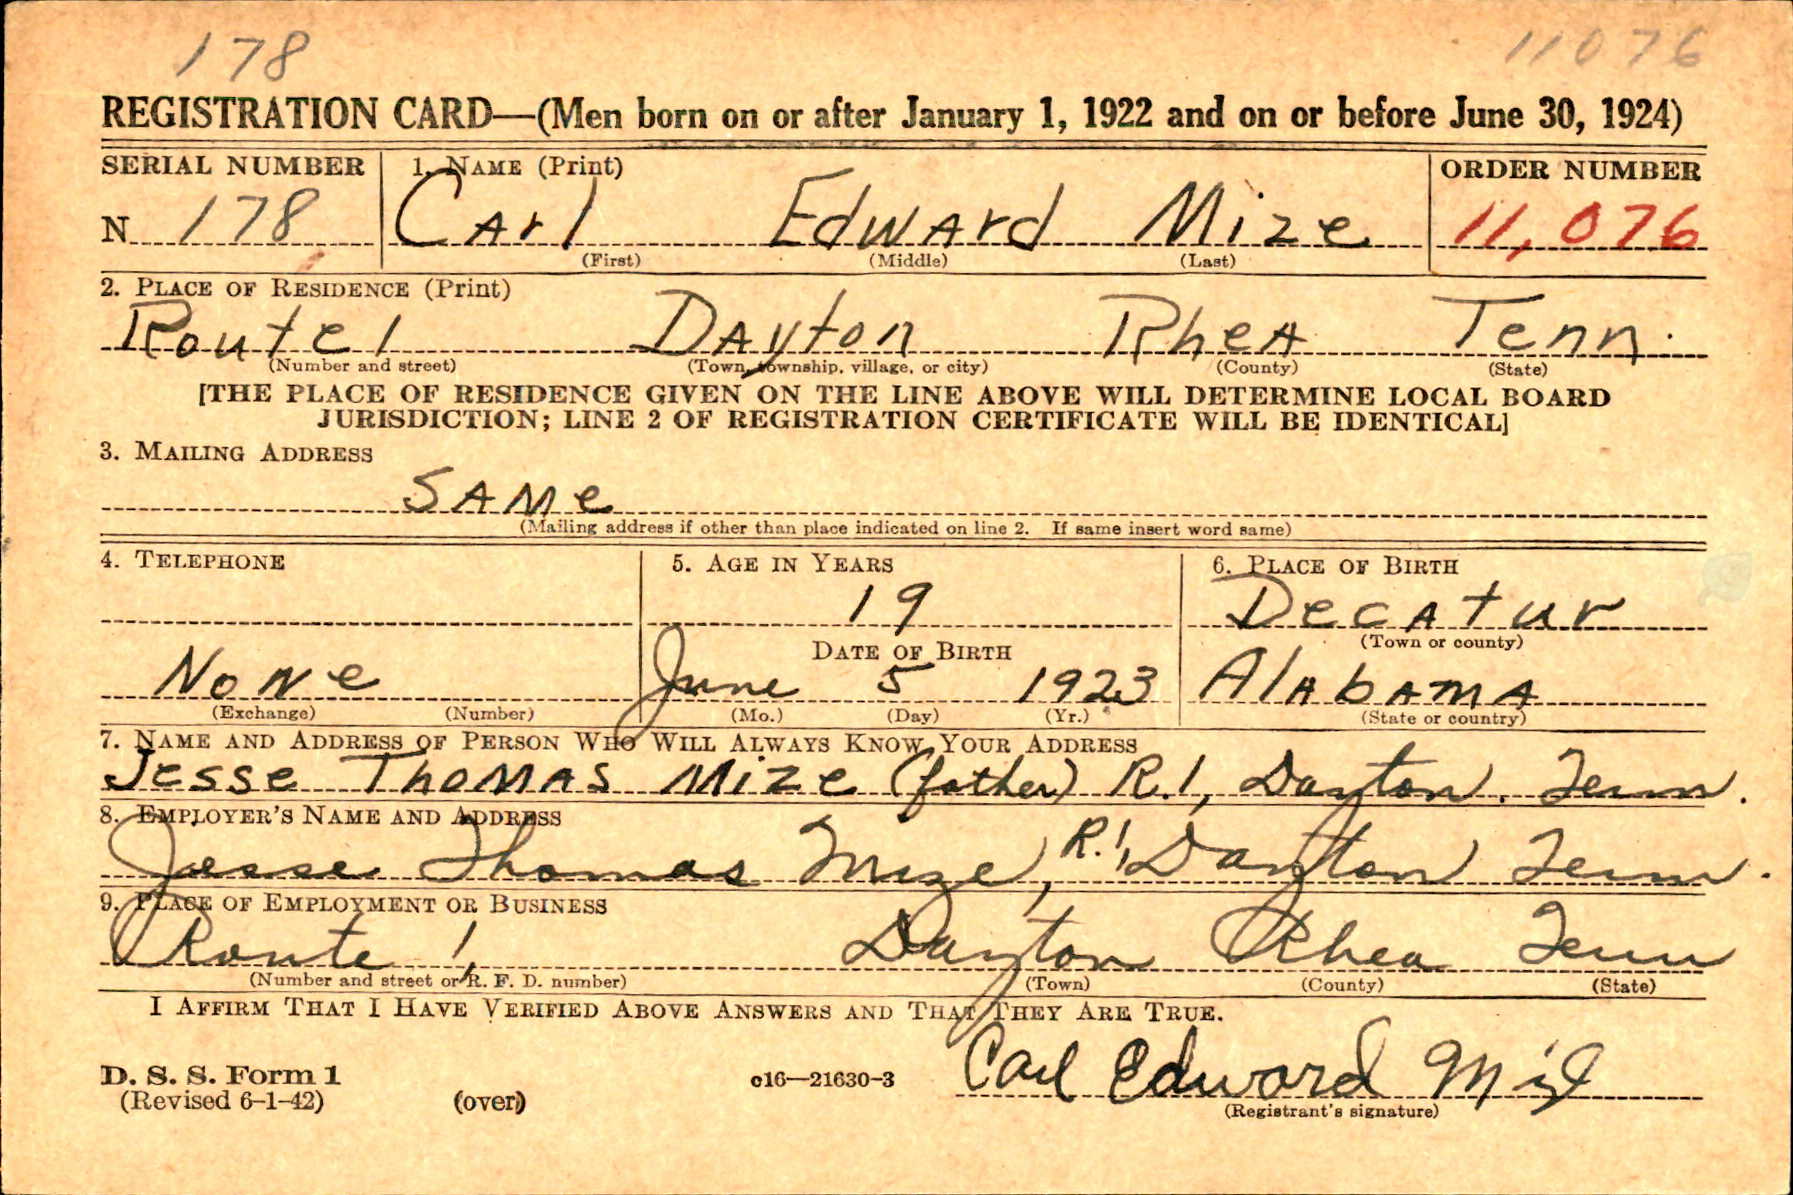 178 11076
REGISTRATION CARD—(Men born on or after January 1, 1922 and on or before June 30, 1924)
SERIAL NUMBER 1. NAME (Print) ORDER NUMBER
N 178 Carl Edward Mize 11,076
(First) (Middle) (Last)
2. PLACE OF RESIDENCE (Print)
Route 1 Dayton Rhea Tenn.
(Number and street) (Town, township, village, or city) (County) (State)
[THE PLACE OF RESIDENCE GIVEN ON THE LINE ABOVE WILL DETERMINE LOCAL BOARD
JURISDICTION; LINE 2 OF REGISTRATION CERTIFICATE WILL BE IDENTICAL]
3. MAILING ADDRESS
Same
(Mailing address if other than place indicated on line 2. If same insert word same)
4. TELEPHONE 5. AGE IN YEARS 6. PLACE OF BIRTH
19 Decatur
DATE OF BIRTH (Town or county)
None June 5 1923 Alabama
(Exchange) (Number) (Mo.) (Day) (Yr.) (State or country)
7. NAME AND ADDRESS OF PERSON WHO WILL ALWAYS KNOW YOUR ADDRESS
Jesse Thomas Mize (father) R.1, Dayton. Tenn.
8. EMPLOYER'S NAME AND ADDRESS
Jesse Thomas Mize, R.1, Dayton, Tenn.
9. PLACE OF EMPLOYMENT OR BUSINESS
Route 1, Dayton Rhea Tenn
(Number and street or R. F. D. number) (Town) (County) (State)
I AFFIRM THAT I HAVE VERIFIED ABOVE ANSWERS AND THAT THEY ARE TRUE.
D. S. S. Form 1 c16—21630-3 Carl Edward Mize
(Revised 6-1-42) (over) (Registrant's signature)